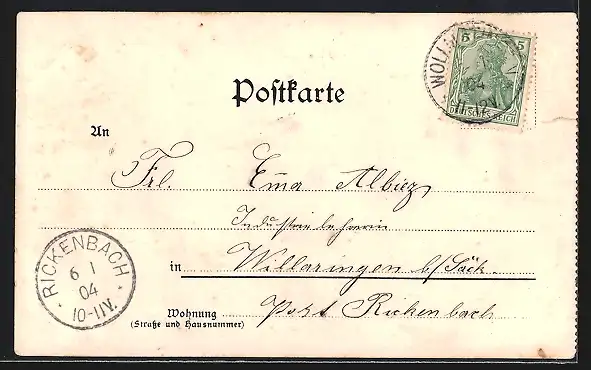 Postkarte
5 5
DEUTSCHES REICH
WOLL
04
11-12V
An
Frl. Ema Albiez
Industrielehrerin
in Willaringen b/Säck.
Post Rickenbach
Wohnung
(Straße und Hausnummer)
RICKENBACH
6 1
04
10-11V.